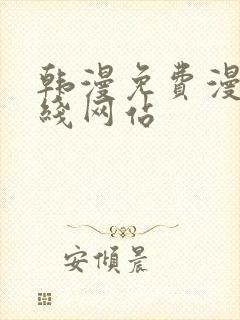 韩漫免费漫
线网站
安倾晨